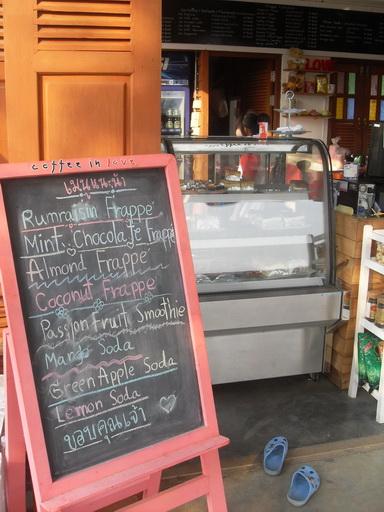 coffee in love
เมนูแนะนำ
Rumraisin Frappé
Mint Chocolate Frappé
Almond Frappé
Coconut Frappé
Passion Fruit Smoothie
Mango Soda
Green Apple Soda
Lemon Soda
ขอบคุณเจ้า
LOVE